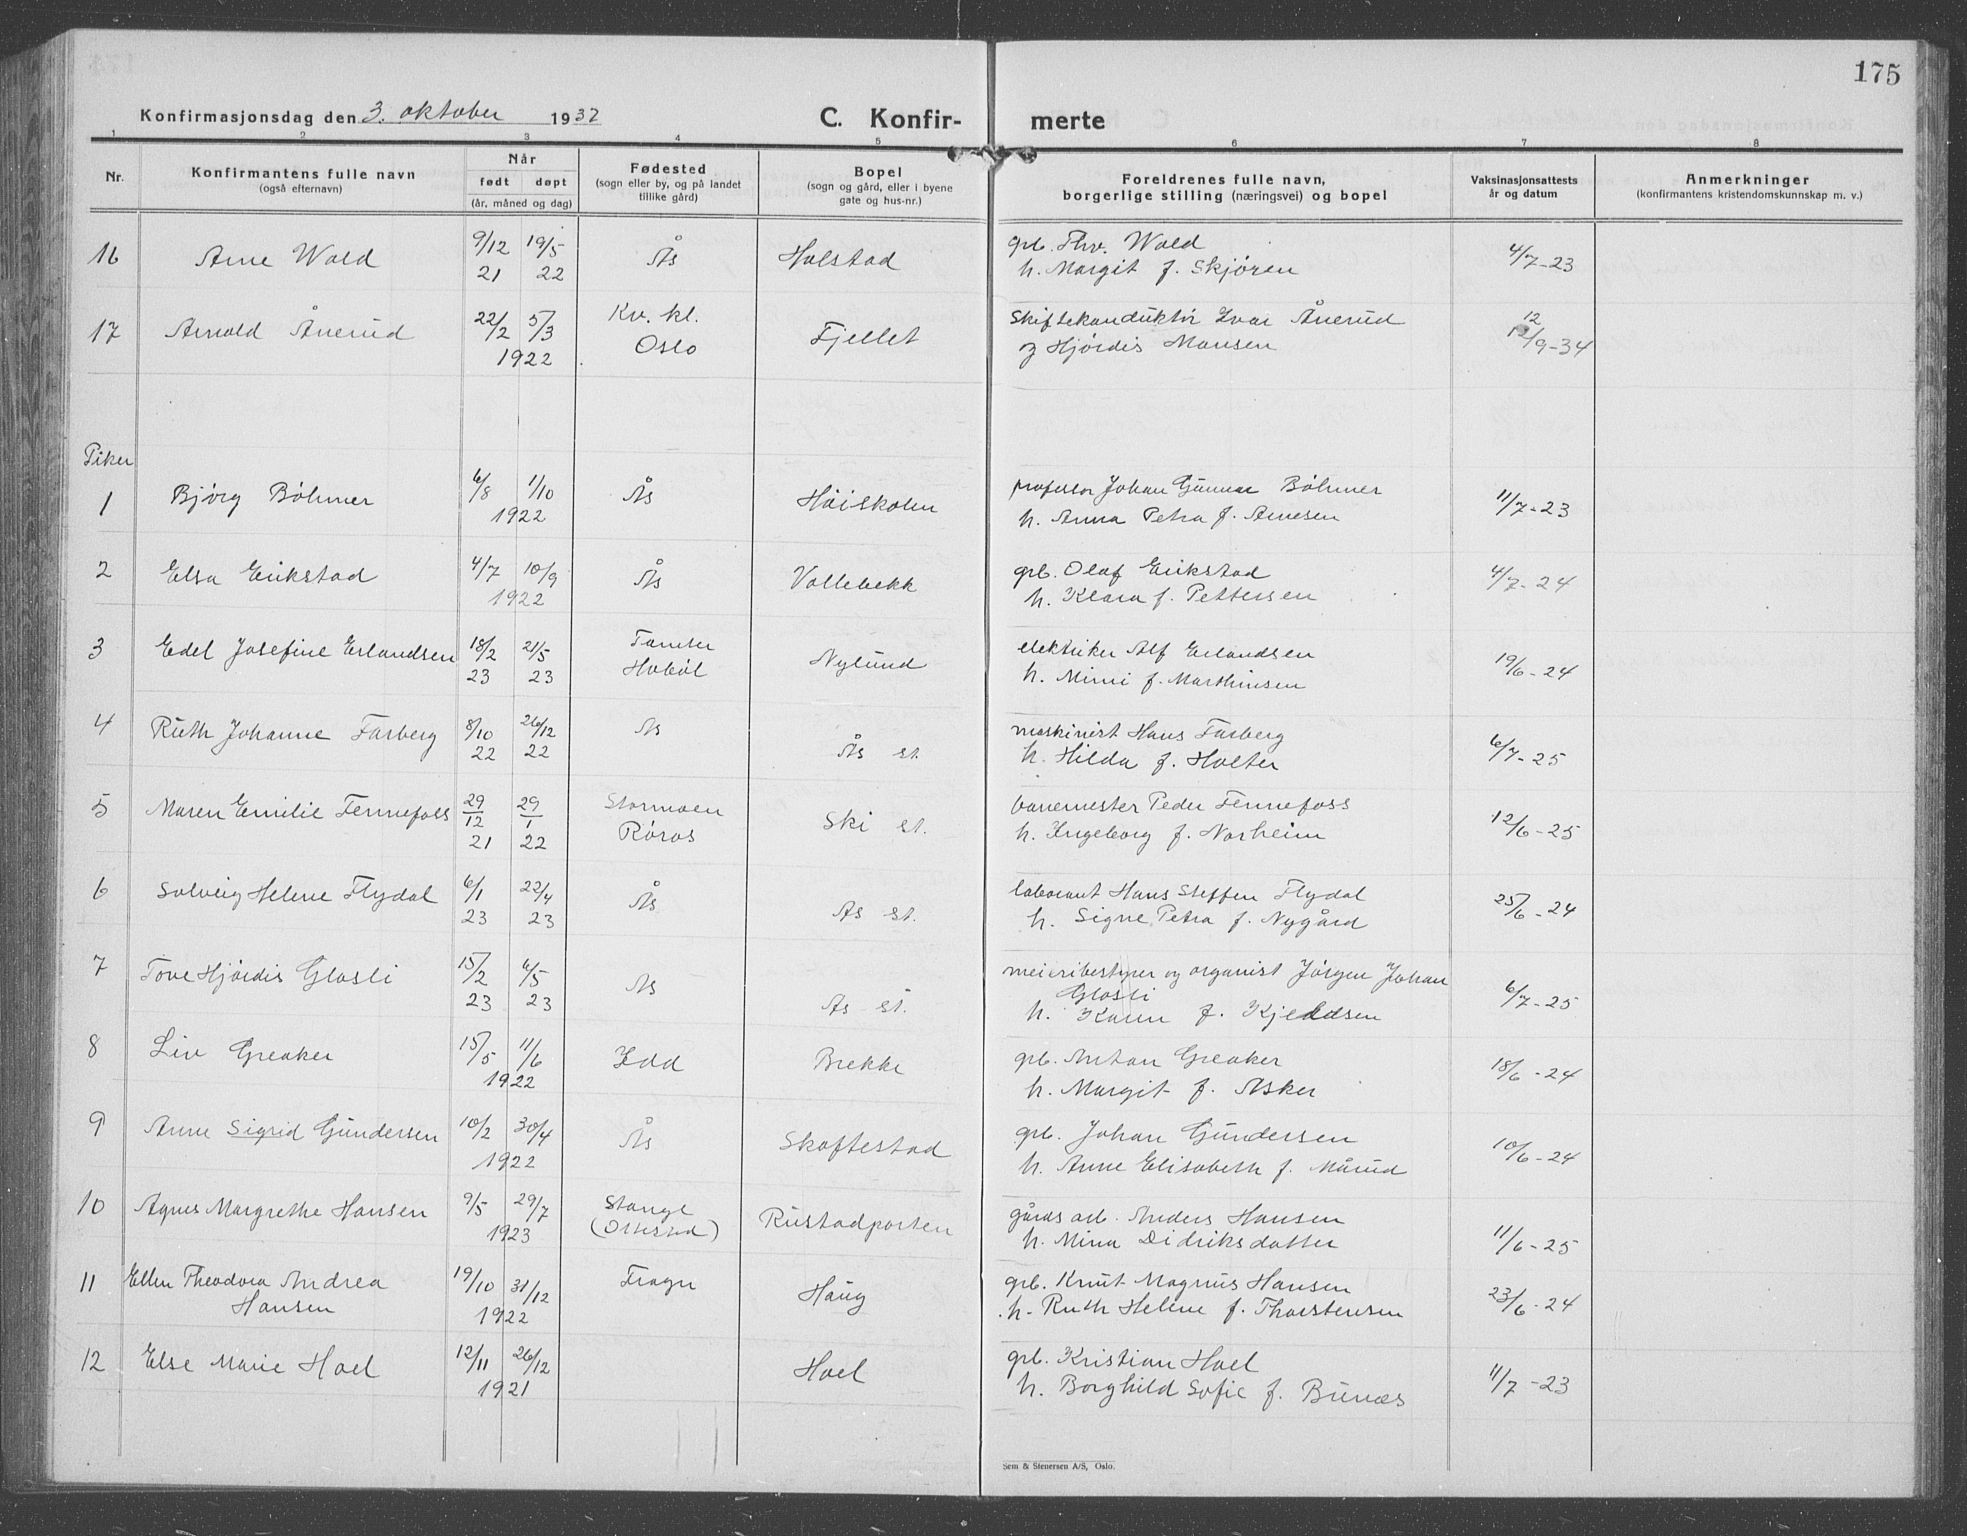 175
Konfirmasjonsdag den 3. oktober 1937
C. Konfir- merte
1 2 3 4 5 6 7 8
Nr.
Konfirmantens fulle navn
(også efternavn)
Når
født døpt
(år, måned og dag)
Fødested
(sogn eller by, og på landet
tillike gård)
Bopel
(sogn og gård, eller i byene
gate og hus-nr.)
Foreldrenes fulle navn,
borgerlige stilling (næringsvei) og bopel
Vaksinasjonsattests
år og datum
Anmerkninger
(konfirmantens kristendomskunnskap m. v.)
16 Arne Wold 9/12 21 19/5 22 Ås Holstad grb. Thv. Wold
h. Margit f. Skjøren 4/7-23
17 Arnold Ånerud 22/2 5/3 1922 Kv. kl. Oslo Fjellet Skiftekonduktør Ivar Ånerud
og Hjørdis Hansen 12 12/9-34
Piker
1 Bjørg Böhmer 6/8 1/10 1922 Ås Høiskolen professor Johan Gunnar Böhmer
h. Anna Petra f. Arnesen 11/7-23
2 Elsa Erikstad 4/7 10/9 1922 Ås Vollebekk grb. Olaf Erikstad
h. Klara f. Pettersen 4/7-24
3 Edel Josefine Erlandsen 18/2 23 21/5 23 Tomter Hobøl Nylund elektriker Alf Erlandsen
h. Mimi f. Marthinsen 19/6-24
4 Ruth Johanne Farberg 8/10 22 26/12 22 Ås Ås st. maskinist Hans Farberg
h. Hilda f. Holter 6/7-25
5 Maren Emilie Fennefoss 29/12 21 29/1 22 Stormoen Røros Ski st. banemester Peder Fennefoss
h. Ingeborg f. Norheim 12/6-25
6 Solveig Helene Flydal 6/1 23 22/4 23 Ås Ås st. laborant Hans Steffen Flydal
h. Signe Petra f. Nygård 25/6-24
7 Tove Hjørdis Glosli 15/2 23 6/5 23 Ås Ås st. meieribestyrer og organist Jørgen Johan
Glosli
h. Karen f. Kjeldsen 6/7-25
8 Liv Greaker 15/5 11/6 1922 Idd Brekke grb. Anton Greaker
h. Margit f. Asker 18/6-24
9 Anne Sigrid Gundersen 10/2 30/4 1922 Ås Skoftestad grb. Johan Gundersen
h. Anne Elisabeth f. Mårud 10/6-24
10 Agnes Margrethe Hansen 9/5 29/7 1923 Stange (Ottestad) Rustadporten gårds arb. Anders Hansen
h. Mina Didriksdatter 11/6-25
11 Ellen Theodora Andrea
Hansen 19/10 31/12 1922 Frogn Haug grb. Knut Magnus Hansen
h. Ruth Helene f. Thorstensen 23/6-24
12 Else Marie Hoel 12/11 26/12 1921 Hoel grb. Kristian Hoel
h. Borghild Sofie f. Bunæs 11/7-23
Sem & Stenersen A/S, Oslo.